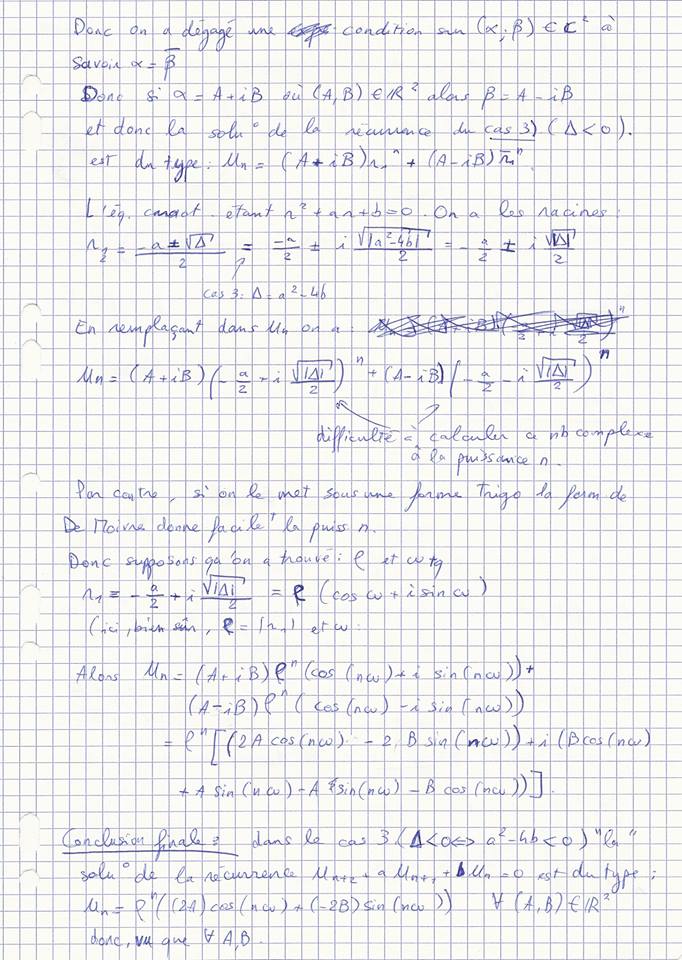 Donc on a dégagé une condition sur (α; β) ∈ C² à
savoir α = β̅
Donc si α = A + iB où (A, B) ∈ ℝ² alors β = A - iB
et donc la solu° de la récurrence du cas 3) (Δ < 0).
est du type : Un = (A + iB) r₁ⁿ + (A - iB) r̅₁ⁿ.
L'éq. caract. étant r² + ar + b = 0. On a les racines :
r½ = (-a ± √Δ)/2 = -a/2 ± i √|a² - 4b|/2 = -a/2 ± i √|Δ|/2
cas 3 : Δ = a² - 4b
En remplaçant dans Un on a :
Un = (A + iB) (-a/2 + i √|Δ|/2)ⁿ + (A - iB) (-a/2 - i √|Δ|/2)ⁿ
difficulté à calculer ce nb complexe
à la puissance n.
Par contre, si on le met sous une forme Trigo la form de
De Moivre donne facilet la puiss n.
Donc supposons qu'on a trouvé : ρ et ω tq
r₁ = -a/2 + i √|Δ|/2 = ρ (cos ω + i sin ω)
(ici, bien sûr, ρ = |r₁| et ω :
Alors Un = (A + iB) ρⁿ (cos (nω) + i sin (nω)) +
(A - iB) ρⁿ (cos (nω) - i sin (nω))
= ρⁿ [(2A cos (nω) - 2 B sin (nω)) + i (B cos (nω)
+ A sin (nω) - A sin (nω) - B cos (nω))].
Conclusion finale : dans le cas 3 (Δ < 0 ⟺ a² - 4b < 0) "la"
solu° de la récurrence Un+2 + a Un+1 + b Un = 0 est du type :
Un = ρⁿ ((2A) cos (nω) + (-2B) sin (nω)) ∀ (A, B) ∈ ℝ²
donc, vu que ∀ A, B.